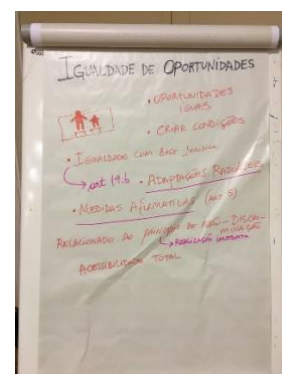 IGUALDADE DE OPORTUNIDADES
• OPORTUNIDADES
IGUAIS
• CRIAR CONDIÇÕES
• IGUALDADE COM BASE
→ art 19.b • ADAPTAÇÕES
• MEDIDAS AFIRMATIVAS (ART 5)
RELACIONADO AO PRINCÍPIO DE NÃO-DISCRI-
MINAÇÃO
→ REALIZAÇÃO IMEDIATA
ACESSIBILIDADE TOTAL